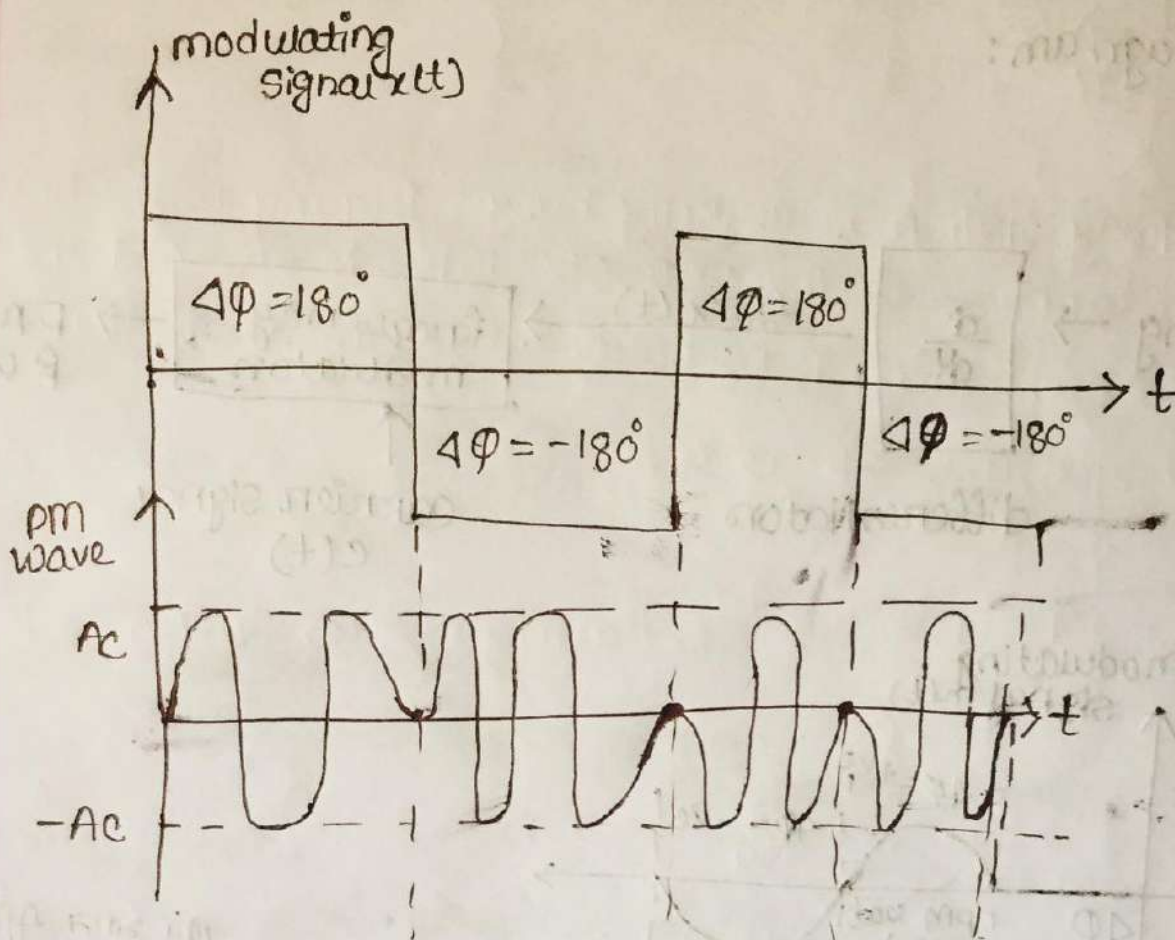 modulating
signal x(t)
Δφ = 180°
Δφ = 180°
t
Δφ = -180°
Δφ = -180°
pm
wave
Ac
t
-Ac